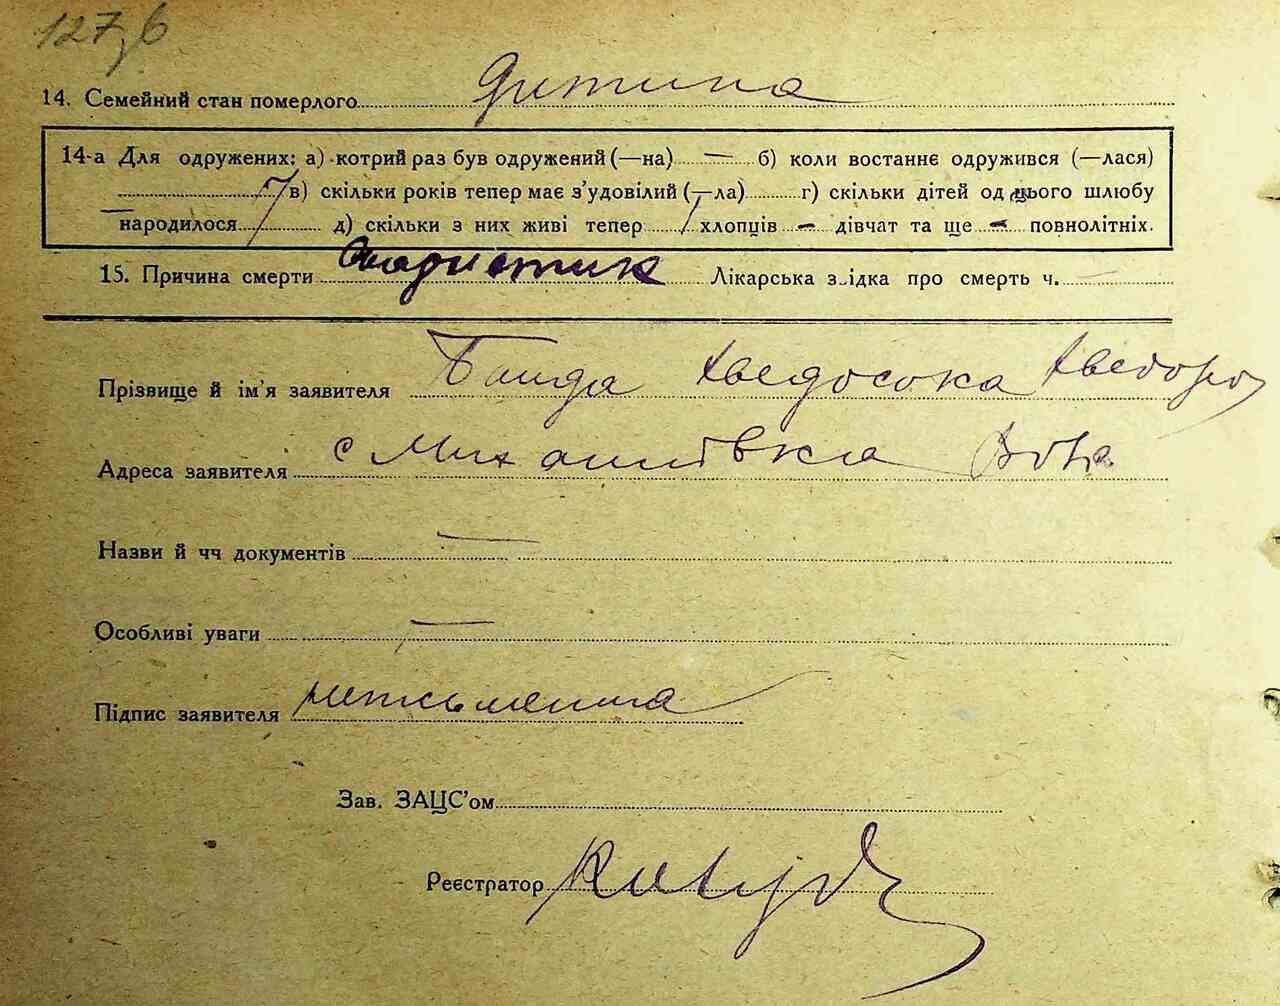 127зб
14. Семейний стан померлого дитина
14-а Для одружених: а) котрий раз був одружений (—на) — б) коли востаннє одружився (—лася)
в) скільки років тепер має з'удовілий (—ла) г) скільки дітей од цього шлюбу
народилося д) скільки з них живі тепер хлопців — дівчат та ще — повнолітніх.
15. Причина смерти Лікарська з-ідка про смерть ч. —
Прізвище й ім'я заявителя Баида Хведосока Хведоро
Адреса заявителя с Михаилівка
Назви й чч документів —
Особливі уваги —
Підпис заявителя неписьменна
Зав. ЗАЦС'ом
Реєстратор